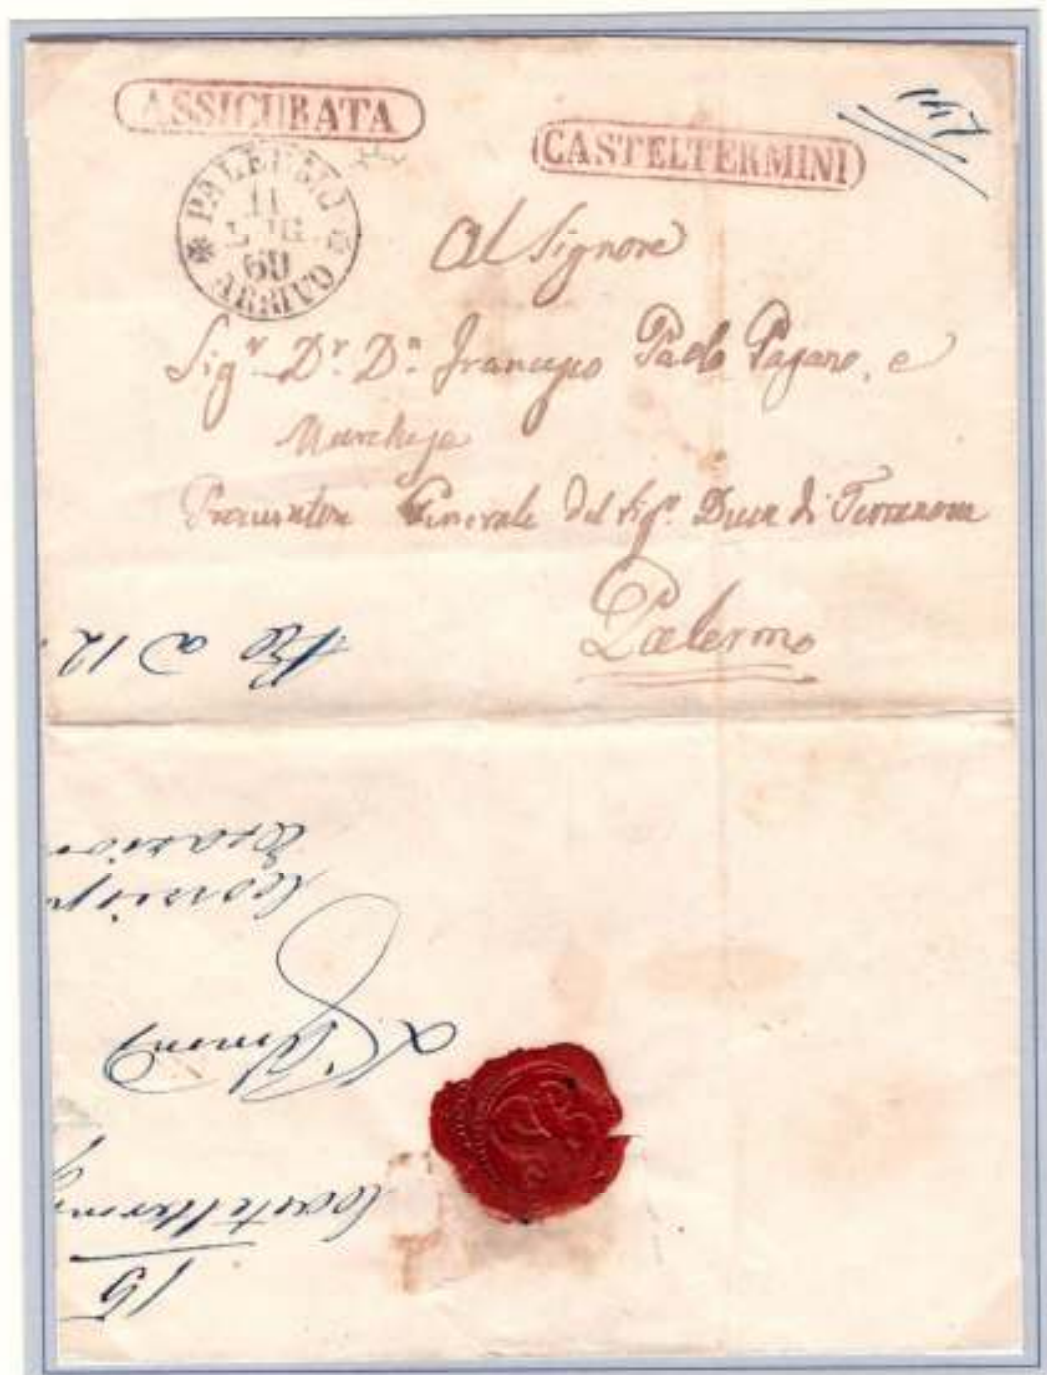 ASSICURATA
CASTELTERMINI
147
PALERMO
11
LUG.
60
ARRIVO
Al Signore
Sigr. Dr. Dn. Francesco Paolo Pagano, e
Marchese
Procuratore Generale del Sigr. Duca di Terranova
Palermo
a 12
Casteltermini
15